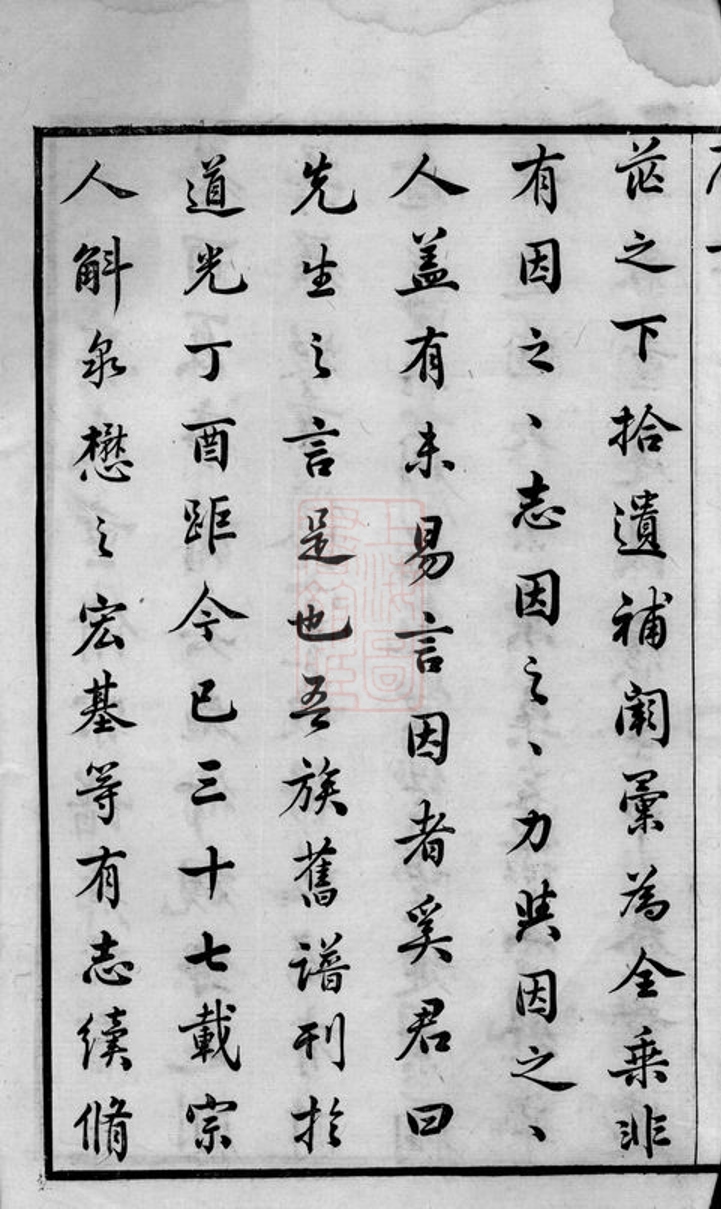 茫之下拾遺補闕彙為全乗非
有因之〻志因之〻力與因之〻
人蓋有未易言因者奚君曰
先生之言是也吾族舊譜刊於
道光丁酉距今已三十七載宗
人斛泉懋之宏基等有志續脩